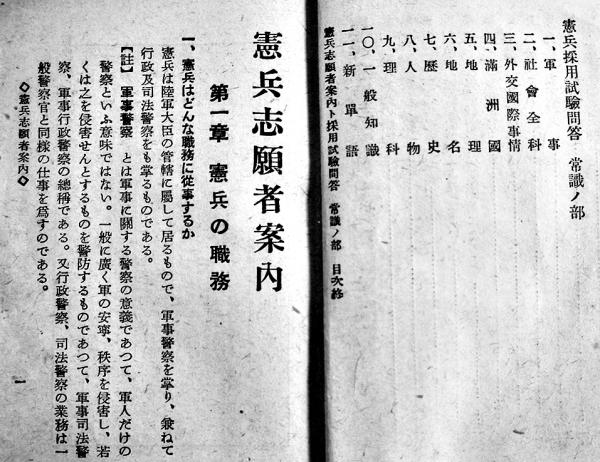 憲兵採用試驗問答 常識ノ部
一、軍事
二、社會全科
三、外交國際事情
四、滿洲國
五、地理
六、地名
七、歷史
八、人物
九、理科
一〇、一般知識
一一、新單語
憲兵志願者案內ト採用試驗問答 常識ノ部 目次終
憲兵志願者案內
第一章 憲兵の職務
一、憲兵はどんな職務に從事するか
憲兵は陸軍大臣の管轄に屬して居るもので、軍事警察を掌り、兼ねて
行政及司法警察をも掌るものである。
【註】 軍事警察 とは軍事に關する警察の意義であつて、軍人だけの
警察といふ意味ではない。一般に廣く軍の安寧、秩序を侵害し、若
くは之を侵害せんとするものを警防するものであつて、軍事司法警
察、軍事行政警察の總稱である。又行政警察、司法警察の業務は一
般警察官と同樣の仕事を爲すのである。
◇憲兵志願者案內◇
一